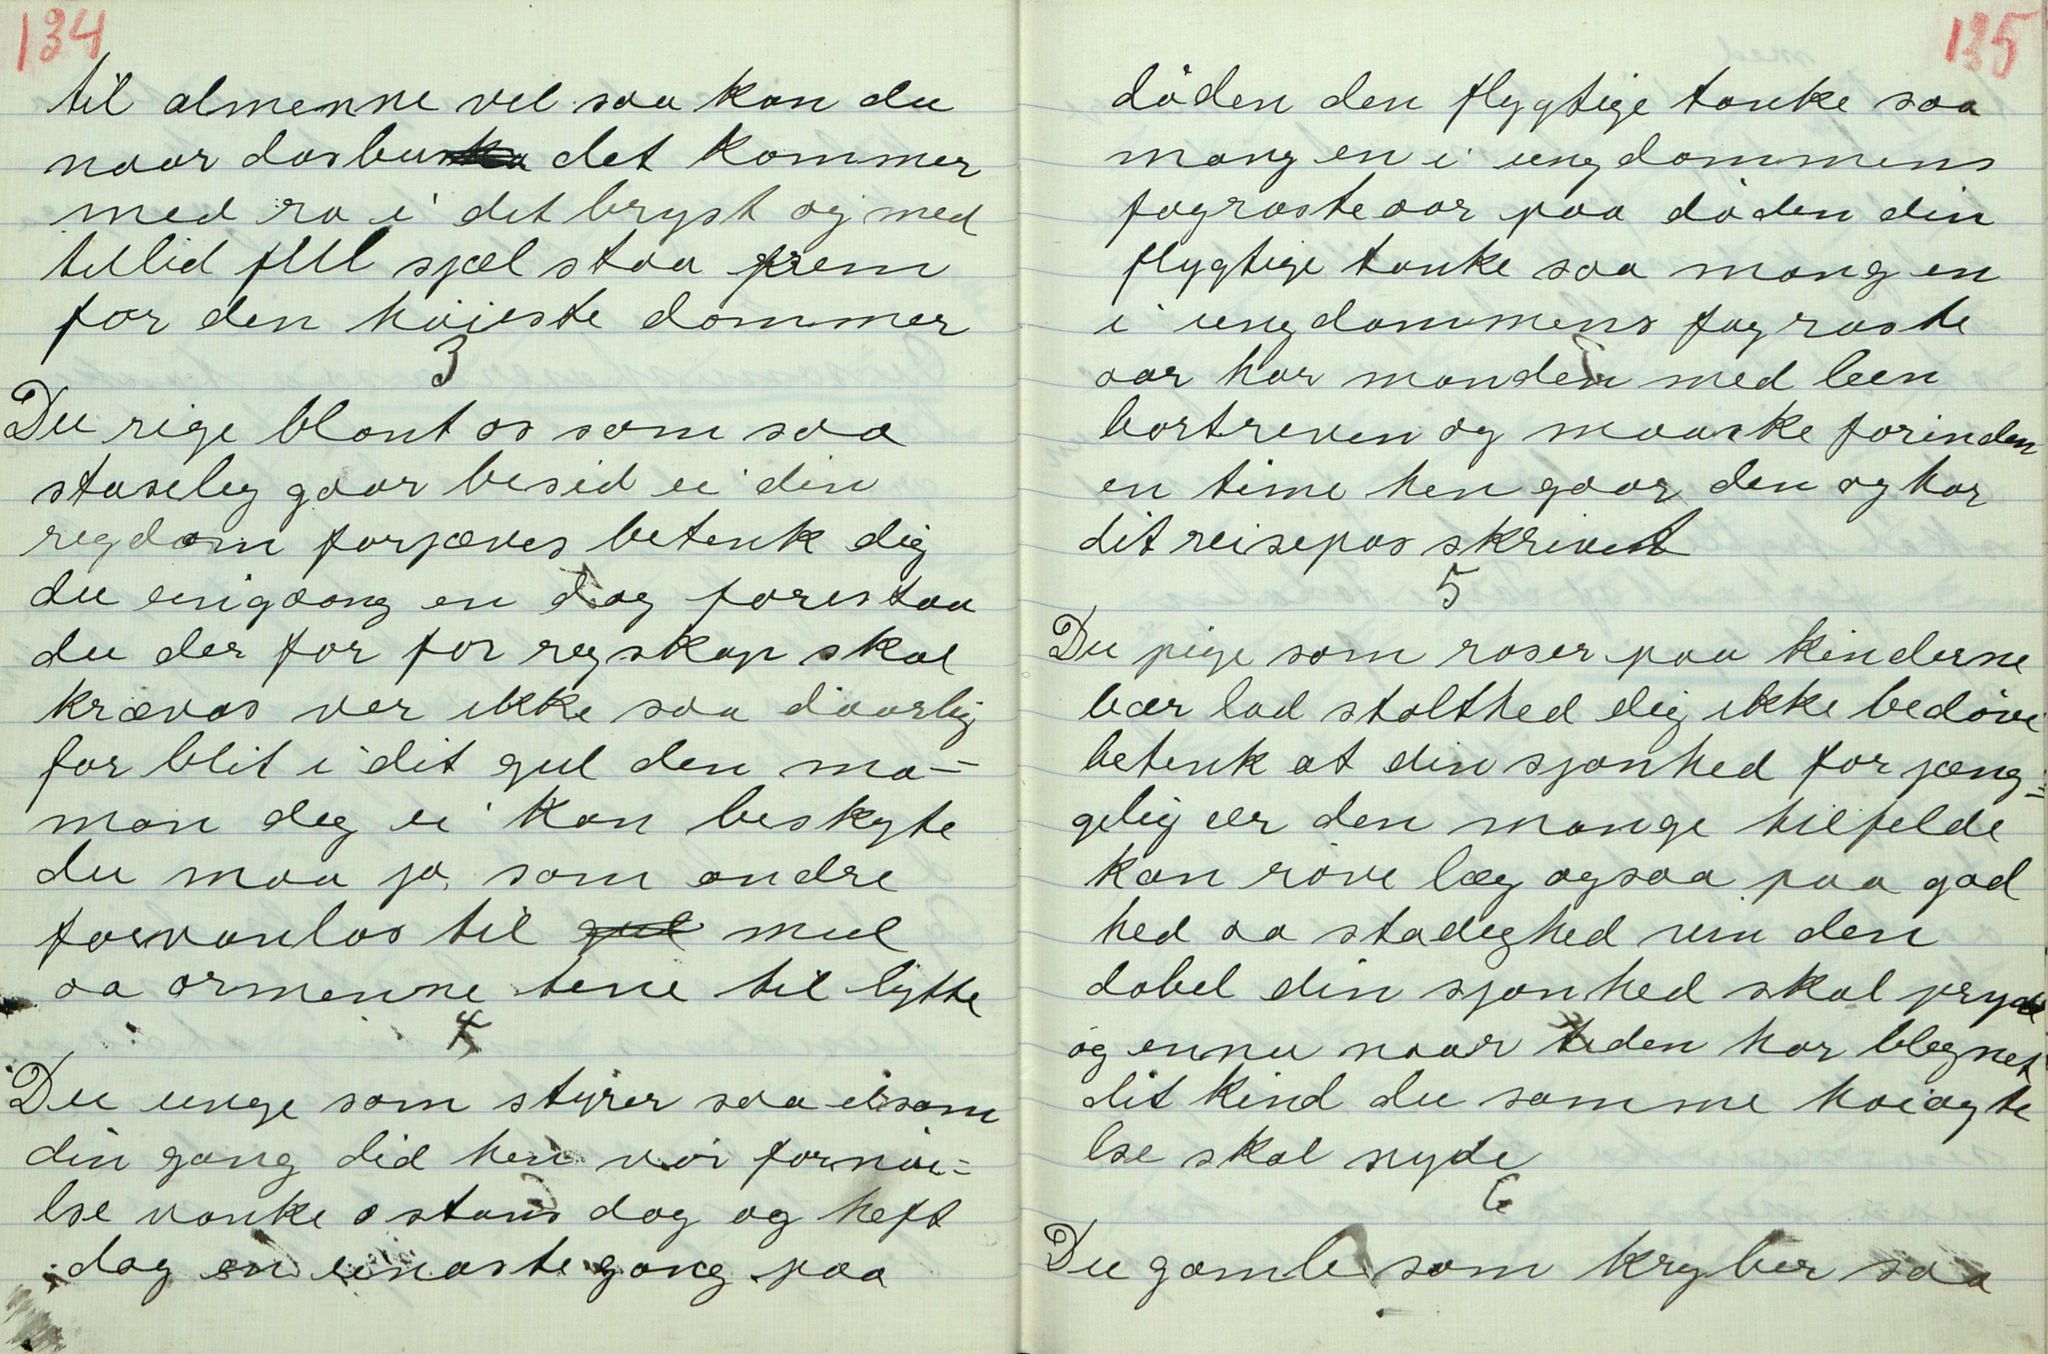 134
til almenne vel saa kan du
naar dosbu det kommer
med ro i det bryst og med
tillid fUl sjæl staa frem
for den høieste dommer
3
Du rige blant os som saa
staselig gaar besid ei din
regdom forjæves betenk dig
du einigaang en dag forestaa
du der for for regskap skal
krævas ver ikke saa daarlig
for blit i dit gul den ma-
mon deg ei kan beskyte
du maa jo som andre
forvanlas til gul mul
aa ormenne tene til bytte
4
Du unge som styrer saa eisom
din gang did hen vor fornøie-
lse vanke o stans dog og heft
dog en einaste gang paa
135
døden den flygtige tanke saa
mang en i ungdommens
fagraste aar paa døden din
flygtige tanke saa mang en
i ungdommens fagraste
aar har manden med leen
bortreven og maaske forinden
en time hen gaar den og har
dit reisepas skrivet
5
Du pige som roser paa kinderne
bær lad stolthed dig ikke bedøve
betenk at din sjønhed forjæng=
gelig eer den mange tilfelde
kan røve læg ogsaa paa god
hed aa stadighed vin den
dobel din sjønhed skal pryde
og ennu naar tiden har blegnet
dit kind du samme høiagte
lse skal nyde
6
Du gamle som kryber saa